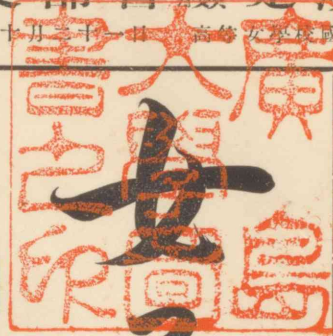 十月二十一日 高等女學校國
女
廣島
大學圖
書之印